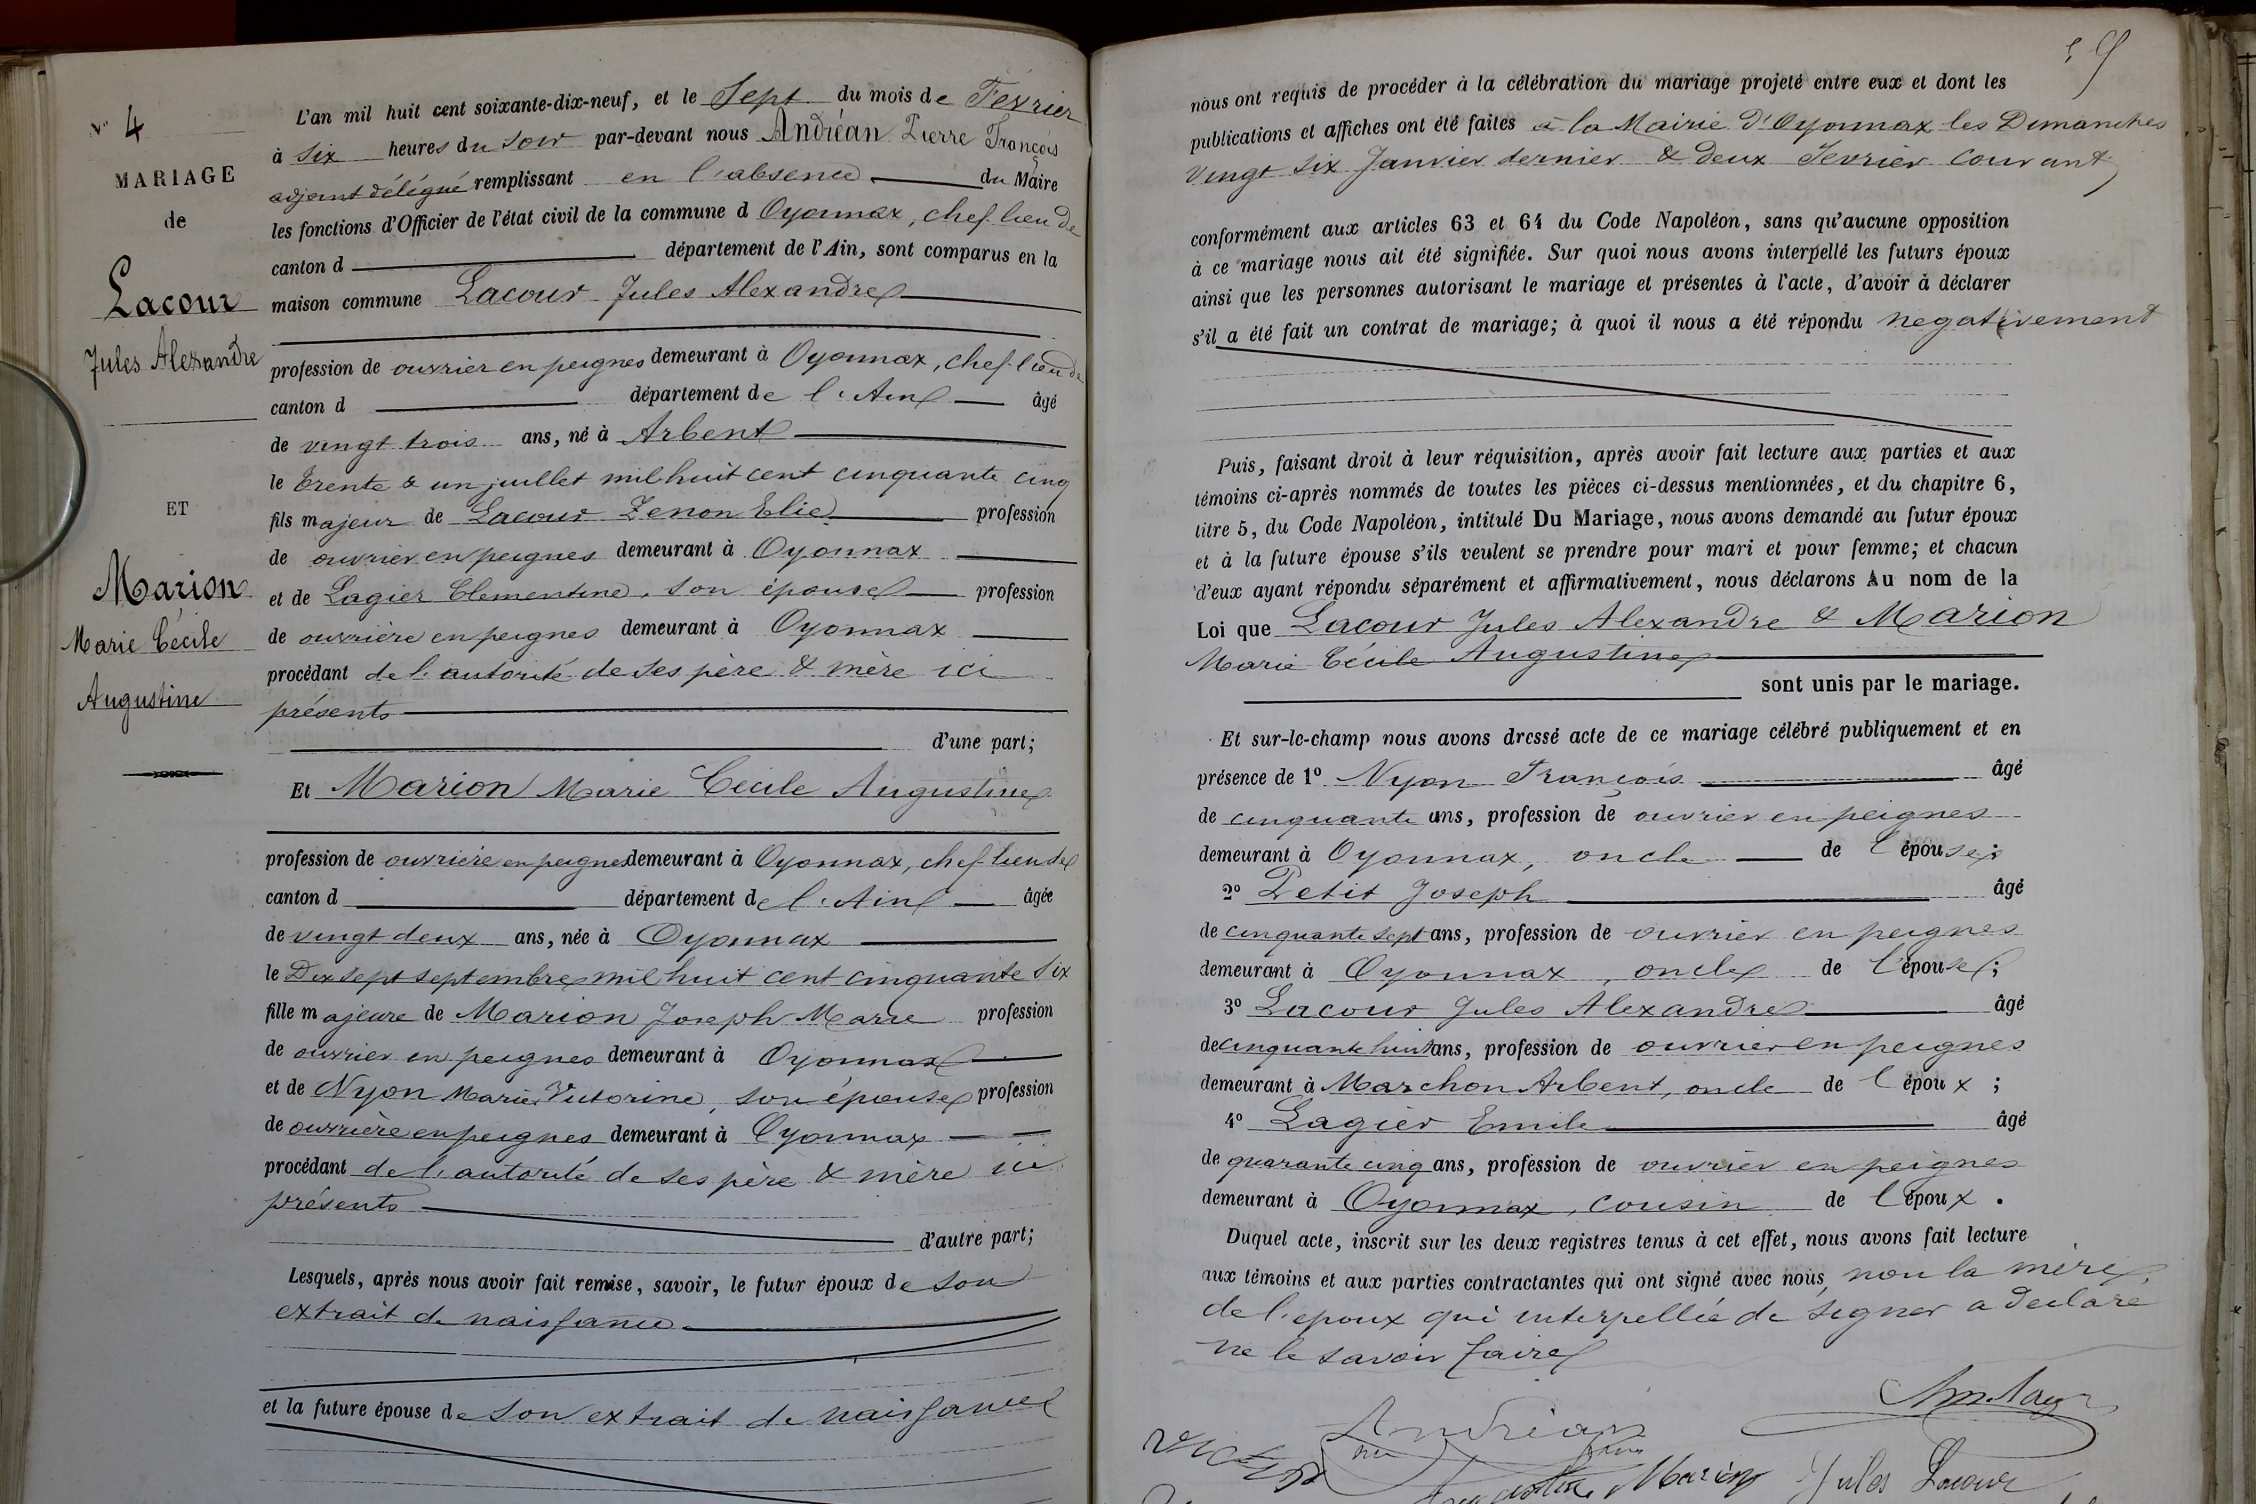 N° 4
MARIAGE
de
Lacour
Jules Alexandre
ET
Marion
Marie Cécile
Augustine
L'an mil huit cent soixante-dix-neuf, et le Sept du mois de Février
à six heures du soir par-devant nous Andréan Pierre François
adjoint délégué remplissant en l'absence du Maire
les fonctions d'Officier de l'état civil de la commune d Oyonnax, chef lieu de
canton d département de l'Ain, sont comparus en la
maison commune Lacour Jules Alexandre
profession de ouvrier en peignes demeurant à Oyonnax, chef lieu de
canton d département de l'Ain âgé
de vingt trois ans, né à Arbent
le trente & un juillet mil huit cent cinquante cinq
fils majeur de Lacour Zenon Elie profession
de ouvrier en peignes demeurant à Oyonnax
et de Lagier Clementine, son épouse profession
de ouvrière en peignes demeurant à Oyonnax
procédant de l'autorité de ses père & mère ici
présents
d'une part;
Et Marion Marie Cécile Augustine
profession de ouvrière en peignes demeurant à Oyonnax, chef lieu de
canton d département de l'Ain âgée
de vingt deux ans, née à Oyonnax
le Dix sept septembre mil huit cent cinquante six
fille majeure de Marion Joseph Marie profession
de ouvrier en peignes demeurant à Oyonnax
et de Nyon Marie Victorine, son épouse profession
de ouvrière en peignes demeurant à Oyonnax
procédant de l'autorité de ses père & mère ici
présents
d'autre part;
Lesquels, après nous avoir fait remise, savoir, le futur époux de son
extrait de naissance
et la future épouse de son extrait de naissance
nous ont requis de procéder à la célébration du mariage projeté entre eux et dont les
publications et affiches ont été faites à la Mairie d'Oyonnax les Dimanches
vingt six Janvier dernier & deux Fevrier courant
conformément aux articles 63 et 64 du Code Napoléon, sans qu'aucune opposition
à ce mariage nous ait été signifiée. Sur quoi nous avons interpellé les futurs époux
ainsi que les personnes autorisant le mariage et présentes à l'acte, d'avoir à déclarer
s'il a été fait un contrat de mariage; à quoi il nous a été répondu negativement
Puis, faisant droit à leur réquisition, après avoir fait lecture aux parties et aux
témoins ci-après nommés de toutes les pièces ci-dessus mentionnées, et du chapitre 6,
titre 5, du Code Napoléon, intitulé Du Mariage, nous avons demandé au futur époux
et à la future épouse s'ils veulent se prendre pour mari et pour femme; et chacun
d'eux ayant répondu séparément et affirmativement, nous déclarons Au nom de la
Loi que Lacour Jules Alexandre & Marion
Marie Cécile Augustine
sont unis par le mariage.
Et sur-le-champ nous avons dressé acte de ce mariage célébré publiquement et en
présence de 1° Nyon François âgé
de cinquante ans, profession de ouvrier en peignes
demeurant à Oyonnax, oncle de l'épouse;
2° Petit Joseph âgé
de cinquante sept ans, profession de ouvrier en peignes
demeurant à Oyonnax, oncle de l'épouse;
3° Lacour Jules Alexandre âgé
de cinquante huit ans, profession de ouvrier en peignes
demeurant à Marchon Arbent, oncle de l'époux;
4° Lagier Emile âgé
de quarante cinq ans, profession de ouvrier en peignes
demeurant à Oyonnax, cousin de l'époux.
Duquel acte, inscrit sur les deux registres tenus à cet effet, nous avons fait lecture
aux témoins et aux parties contractantes qui ont signé avec nous, non la mère
de l'epoux qui interpellée de signer a declaré
ne le savoir faire
Andréan
Marion Jules Lacour